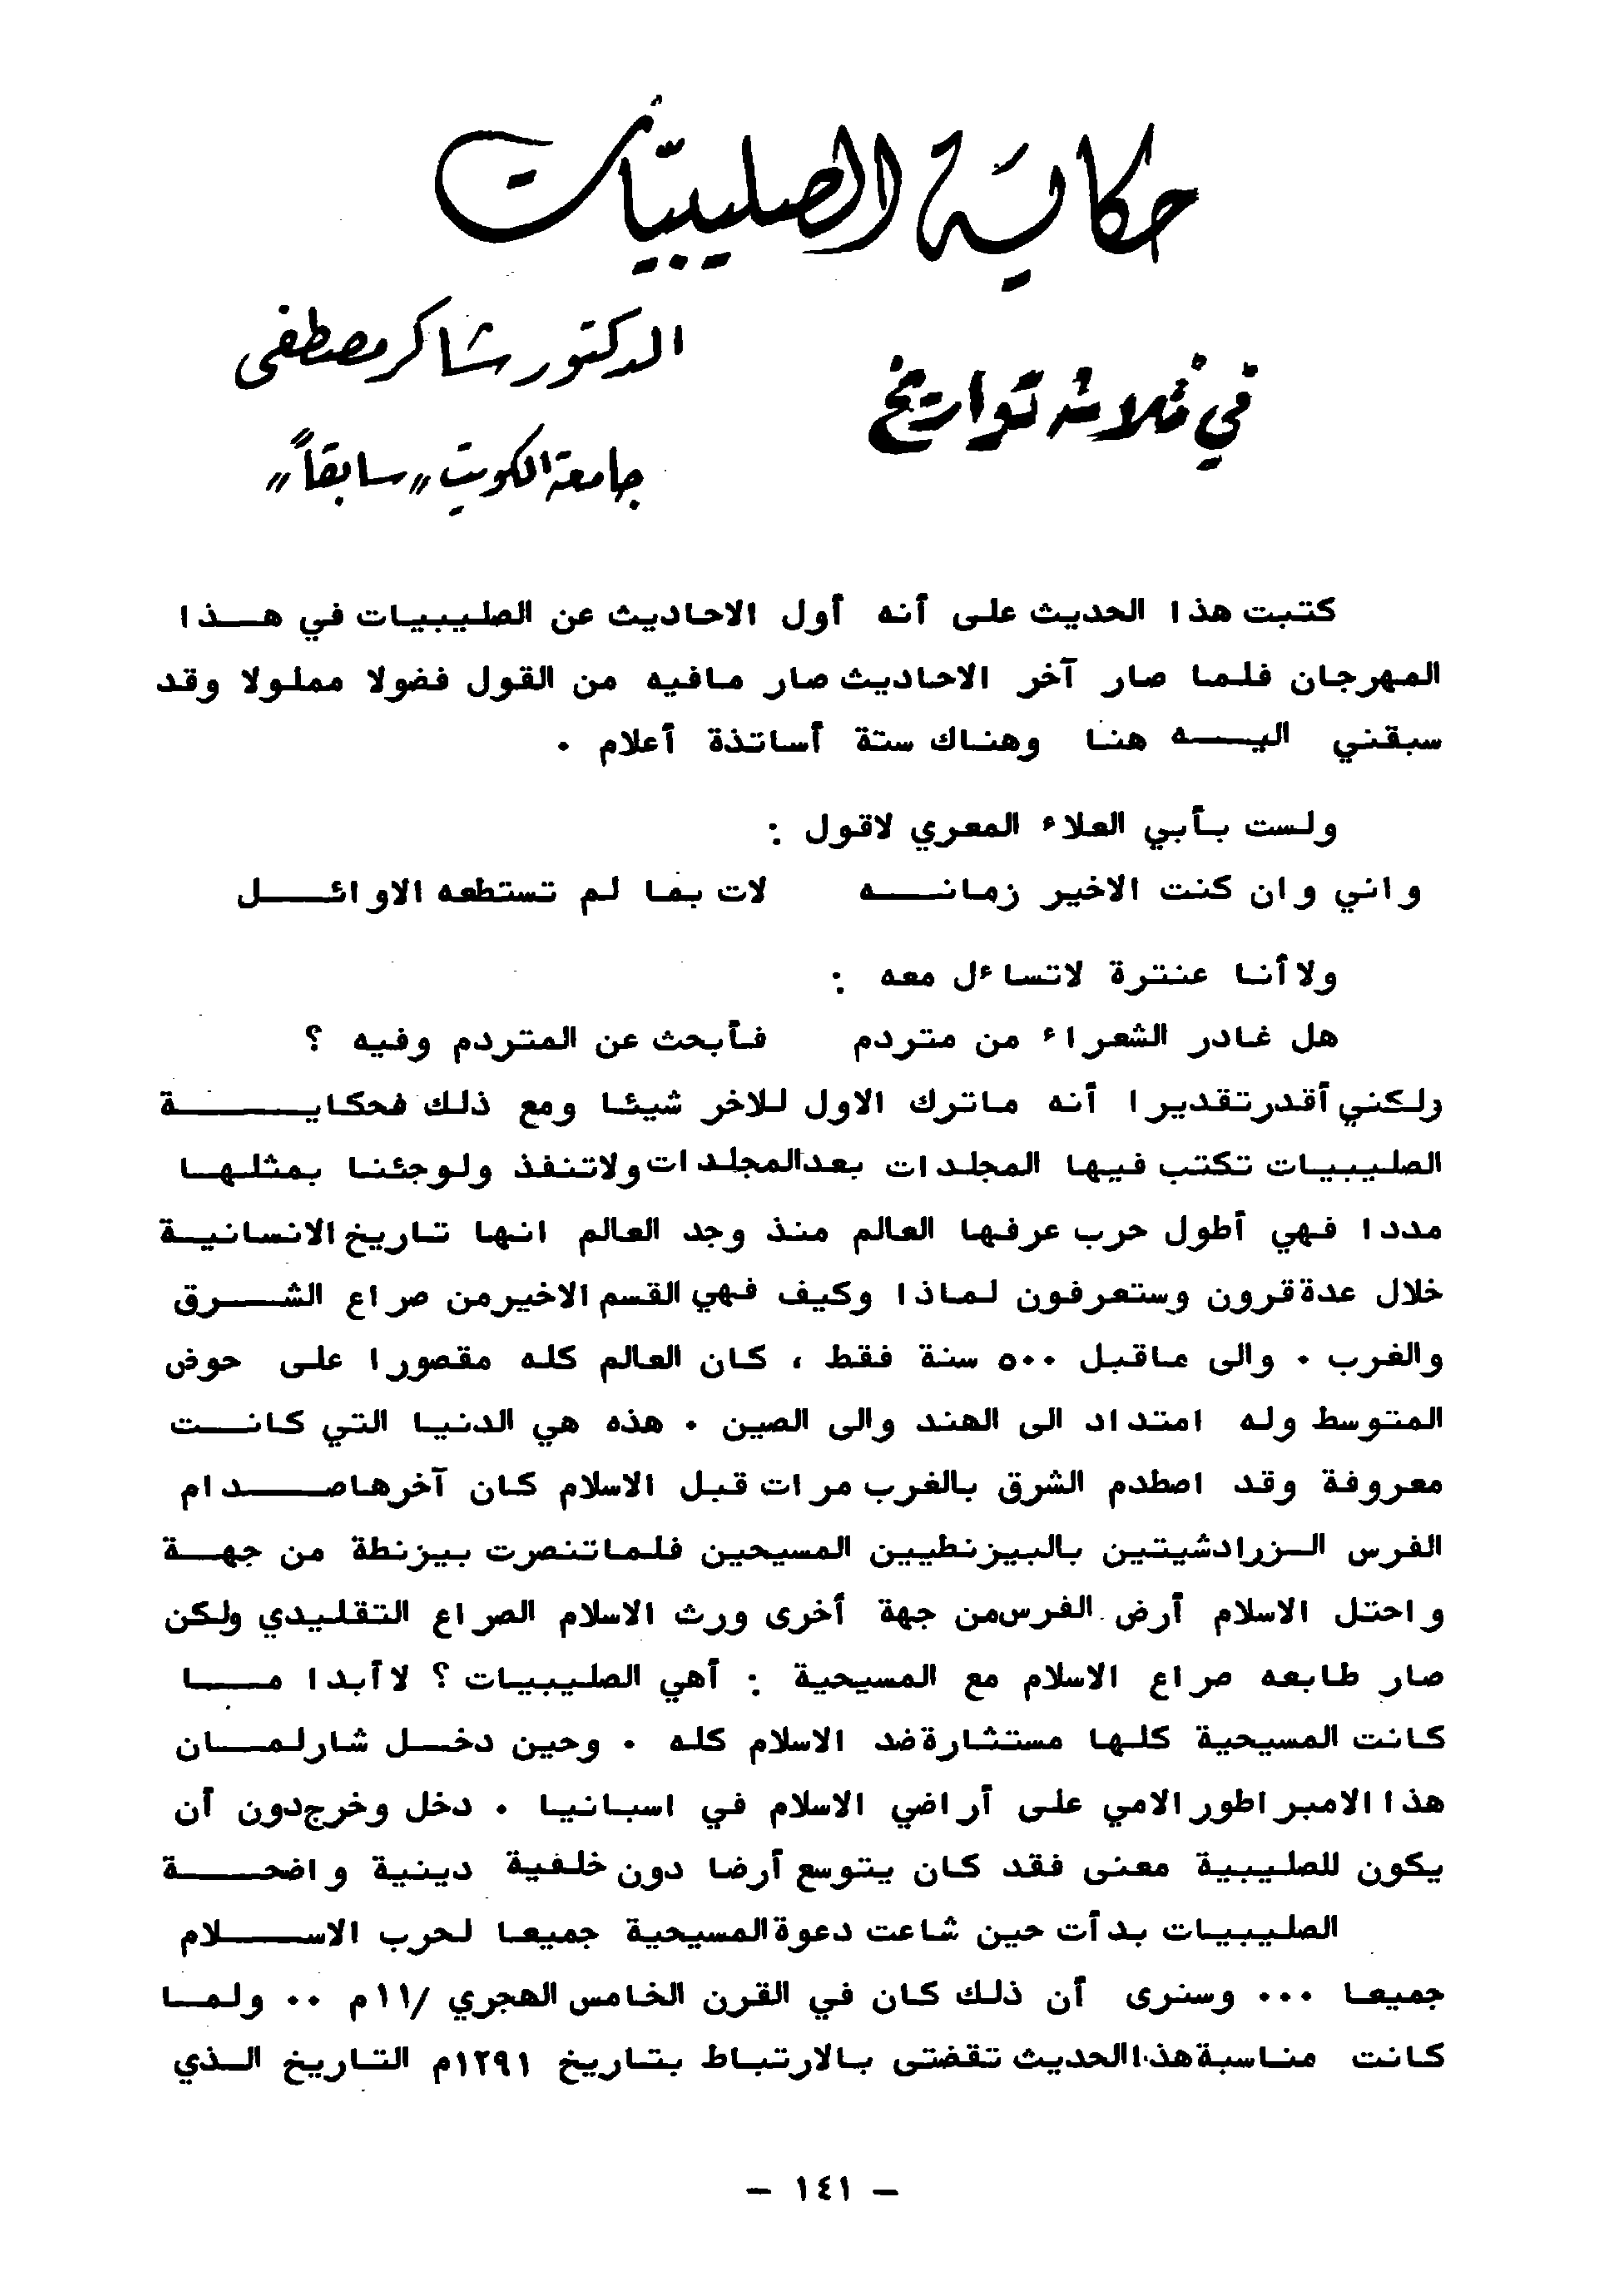 حكاية الصليبيّات
في ثلاثة تواريخ
الدكتور شاكر مصطفى
جامعة الكويت «سابقاً»
كتبت هذا الحديث على أنه أول الاحاديث عن الصليبيات في هــذا
المهرجان فلما صار آخر الاحاديث صار مافيه من القول فضولا مملولا وقد
سبقني اليــه هنا وهناك ستة أساتذة أعلام .
ولست بأبي العلاء المعري لاقول :
واني وان كنت الاخير زمانــه لات بما لم تستطعه الاوائــل
ولا أنا عنترة لاتساءل معه :
هل غادر الشعراء من متردم فأبحث عن المتردم وفيه ؟
ولكني أقدر تقديرا أنه ماترك الاول للاخر شيئا ومع ذلك فحكايــة
الصليبيات تكتب فيها المجلدات بعد المجلدات ولاتنفذ ولوجئنا بمثلها
مددا فهي أطول حرب عرفها العالم منذ وجد العالم انها تاريخ الانسانية
خلال عدة قرون وستعرفون لماذا وكيف فهي القسم الاخير من صراع الشــرق
والغرب . والى ماقبل ٥٠٠ سنة فقط ، كان العالم كله مقصورا على حوض
المتوسط وله امتداد الى الهند والى الصين . هذه هي الدنيا التي كانــت
معروفة وقد اصطدم الشرق بالغرب مرات قبل الاسلام كان آخرها صــدام
الفرس الــزرادشيتين بالبيزنطيين المسيحين فلما تنصرت بيزنطة من جهــة
واحتل الاسلام أرض الفرس من جهة أخرى ورث الاسلام الصراع التقليدي ولكن
صار طابعه صراع الاسلام مع المسيحية : أهي الصليبيات ؟ لا أبدا مــا
كانت المسيحية كلها مستثارة ضد الاسلام كله . وحين دخــل شارلمــان
هذا الامبراطور الامي على أراضي الاسلام في اسبانيا . دخل وخرج دون أن
يكون للصليبية معنى فقد كان يتوسع أرضا دون خلفية دينية واضحــة
الصليبيات بدأت حين شاعت دعوة المسيحية جميعا لحرب الاســلام
جميعا ... وسنرى أن ذلك كان في القرن الخامس الهجري /١١م .. ولمــا
كانت مناسبة هذا الحديث تقضتى بالارتباط بتاريخ ١٢٩١م التاريخ الــذي
- ١٤١ -